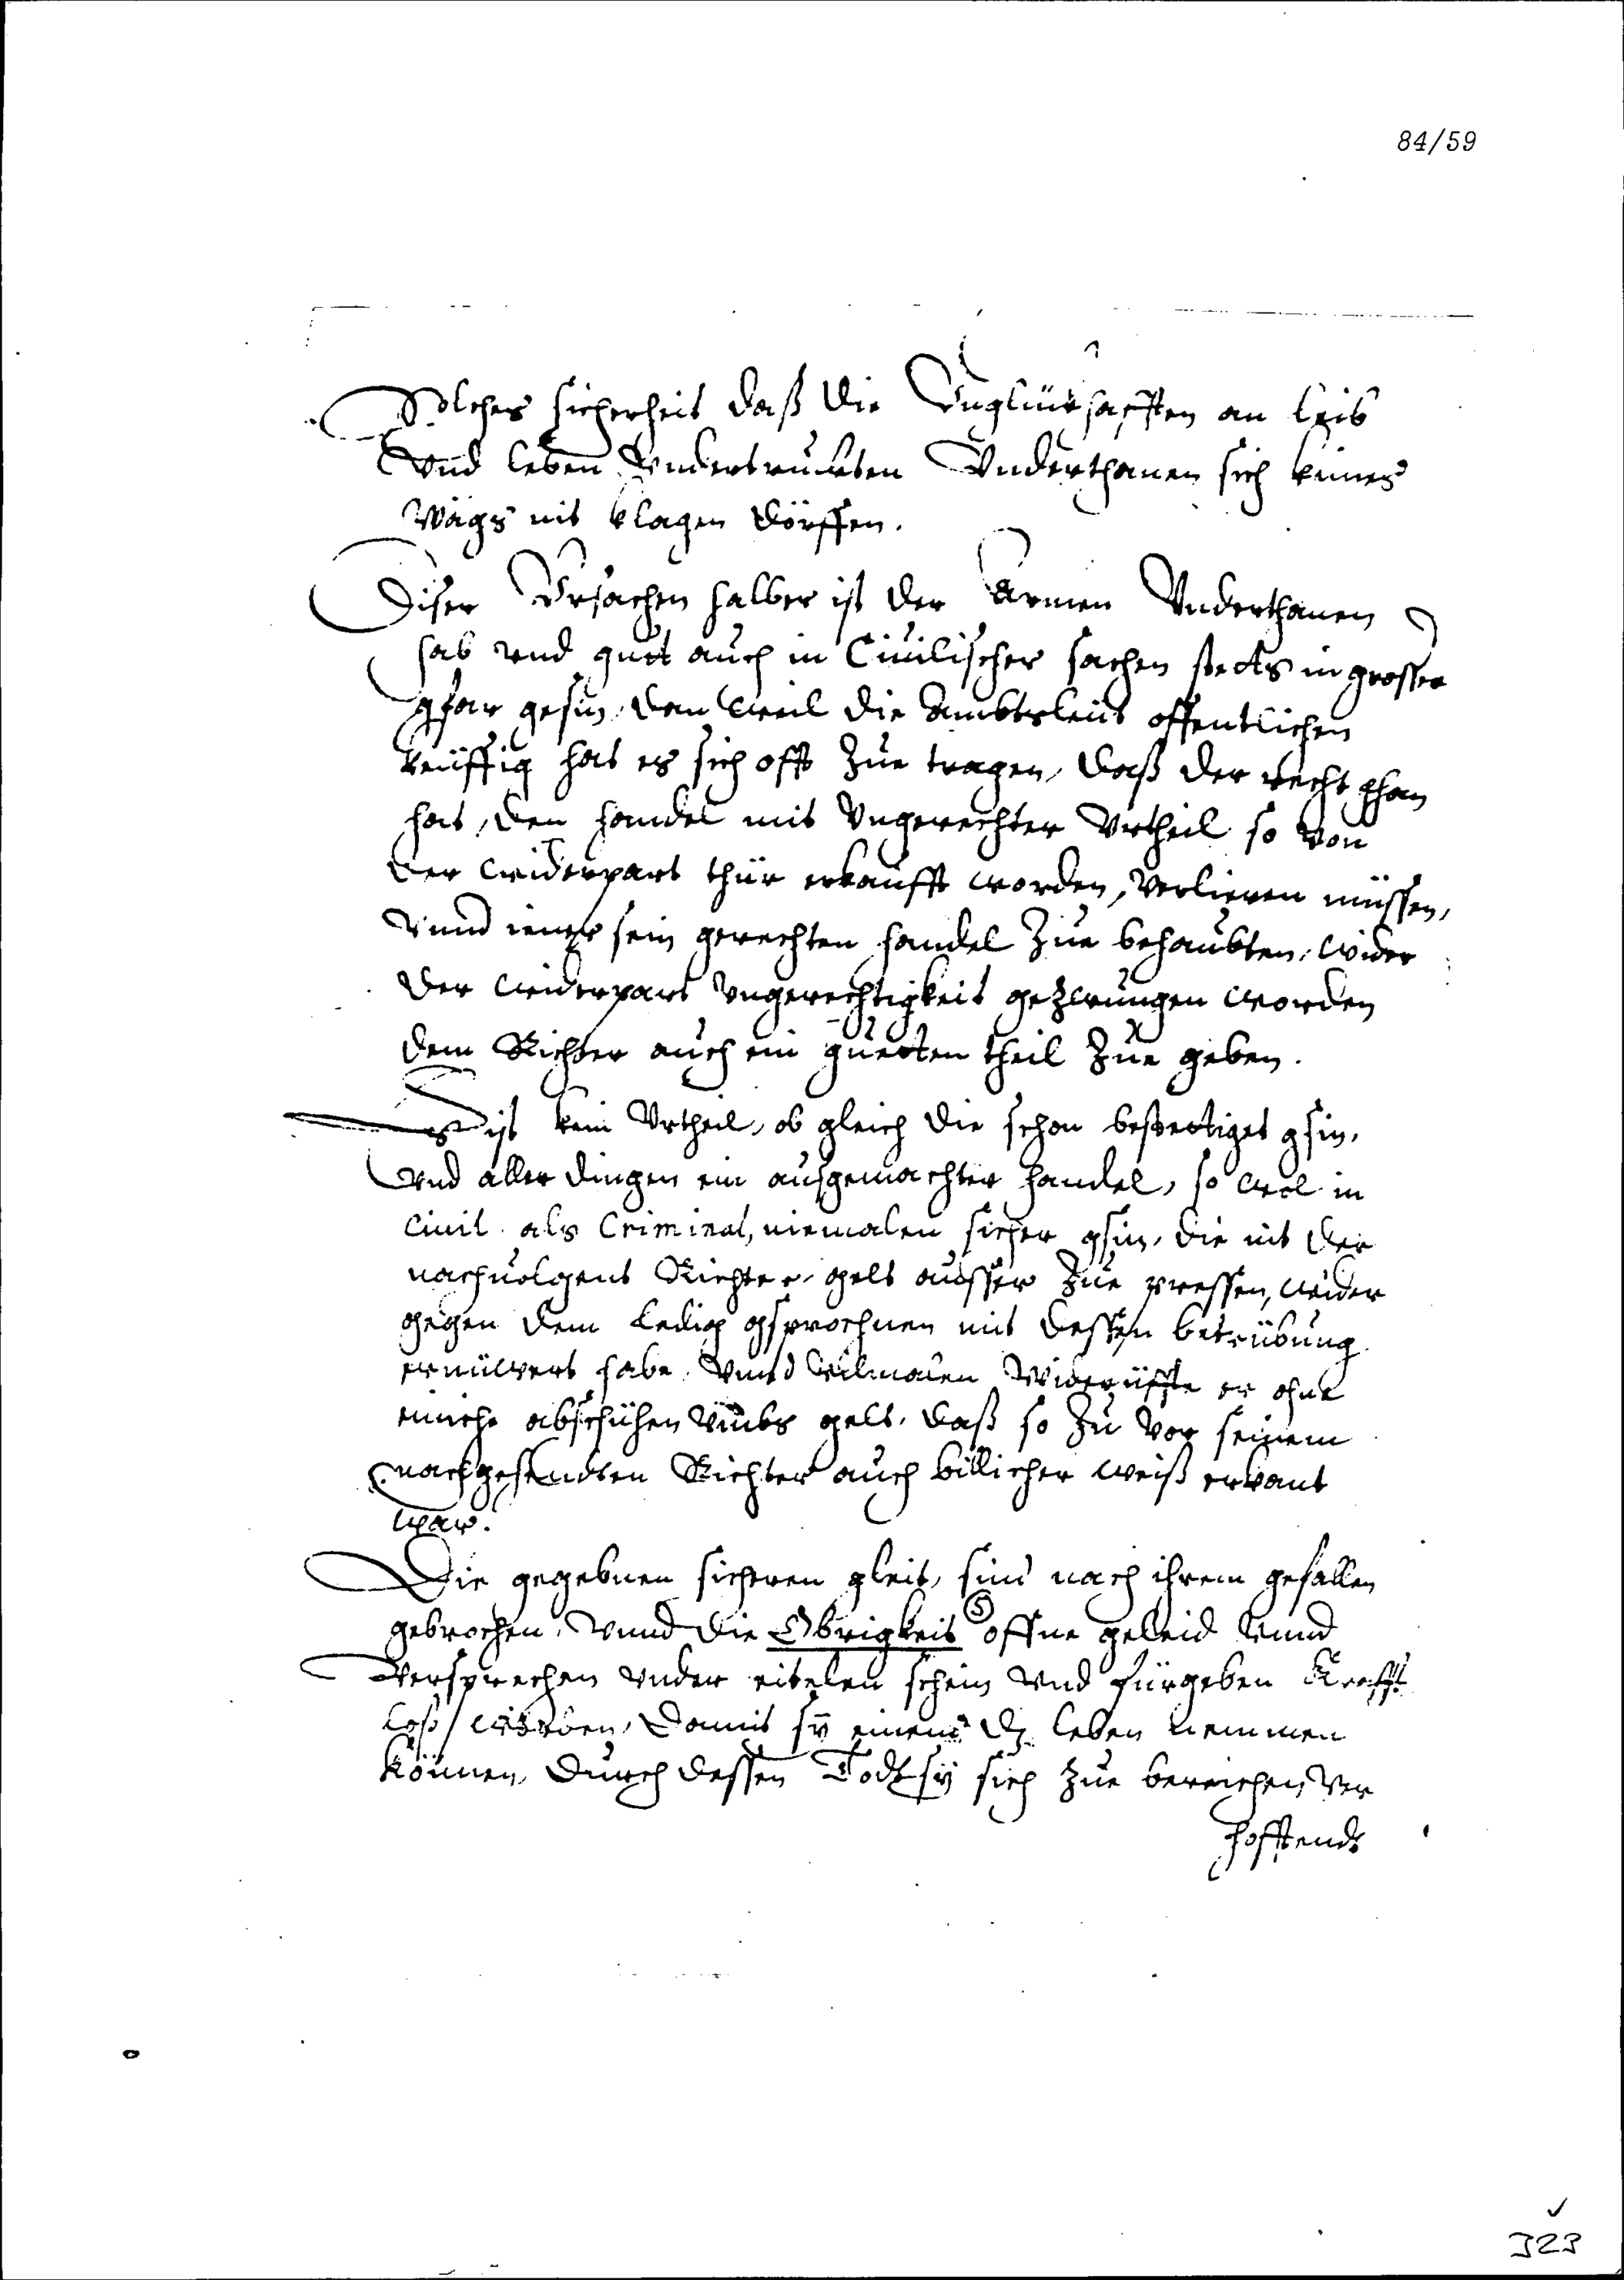 84/59
Solcher sicherheit daß die Unglückhafften an leib
Vnd leben Vndertruckten Vnderthanen sich keines
Wägs nit klagen dörffen.
Diser Vrsachen halber ist der Armen Vnderthanen
hab vnd gutt auch in Ciuilischer sachen stetts in grosser
gfar gesin, dan weil die Ambtsleüt offentlichen
keüffig hat es sich offt zue tragen, daß der recht ghan
hat, den handel mit Vngerechter Vrtheil so von
der widerpart thür erkaufft worden, Verlieren müssen,
Vnnd iener sein gerechten handel zue behaubten, wider
der widerpart Vngerechtigkeit gezwungen worden
dem Richter auch ein guetten theil zue geben.
Es ist kein Vrtheil, ob gleich die schon bestettiget gsin,
Vnd aller dingen ein ausgemachter handel, so wol in
Ciuil als Criminal, niemalen sicher gsin, die nit der
nachuolgent Richter, gelt ausser zue pressen, wider
gegen dem ledig gsprochnen mit dessen betrübung
ernüwert habe, Vnnd Vilmalen Widerüffte er ohne
einiche abschühen Vmbs gelt, daß so zu Vor seinem
nachgesendten Richter auch billicher weiß erkant
war.
Die gegebnen sicheren gleit, sind nach ihrem gefallen
gebrochen, Vnnd die Obrigkeit offne geleid Vnnd
Versprechen vnder eitelen schein Vnd fürgeben Krafft
loß / worden, Damit sÿ einem dz leben nemmen
können, durch dessen Todt sÿ sich zue bereichen, Ver
hoffendt
323